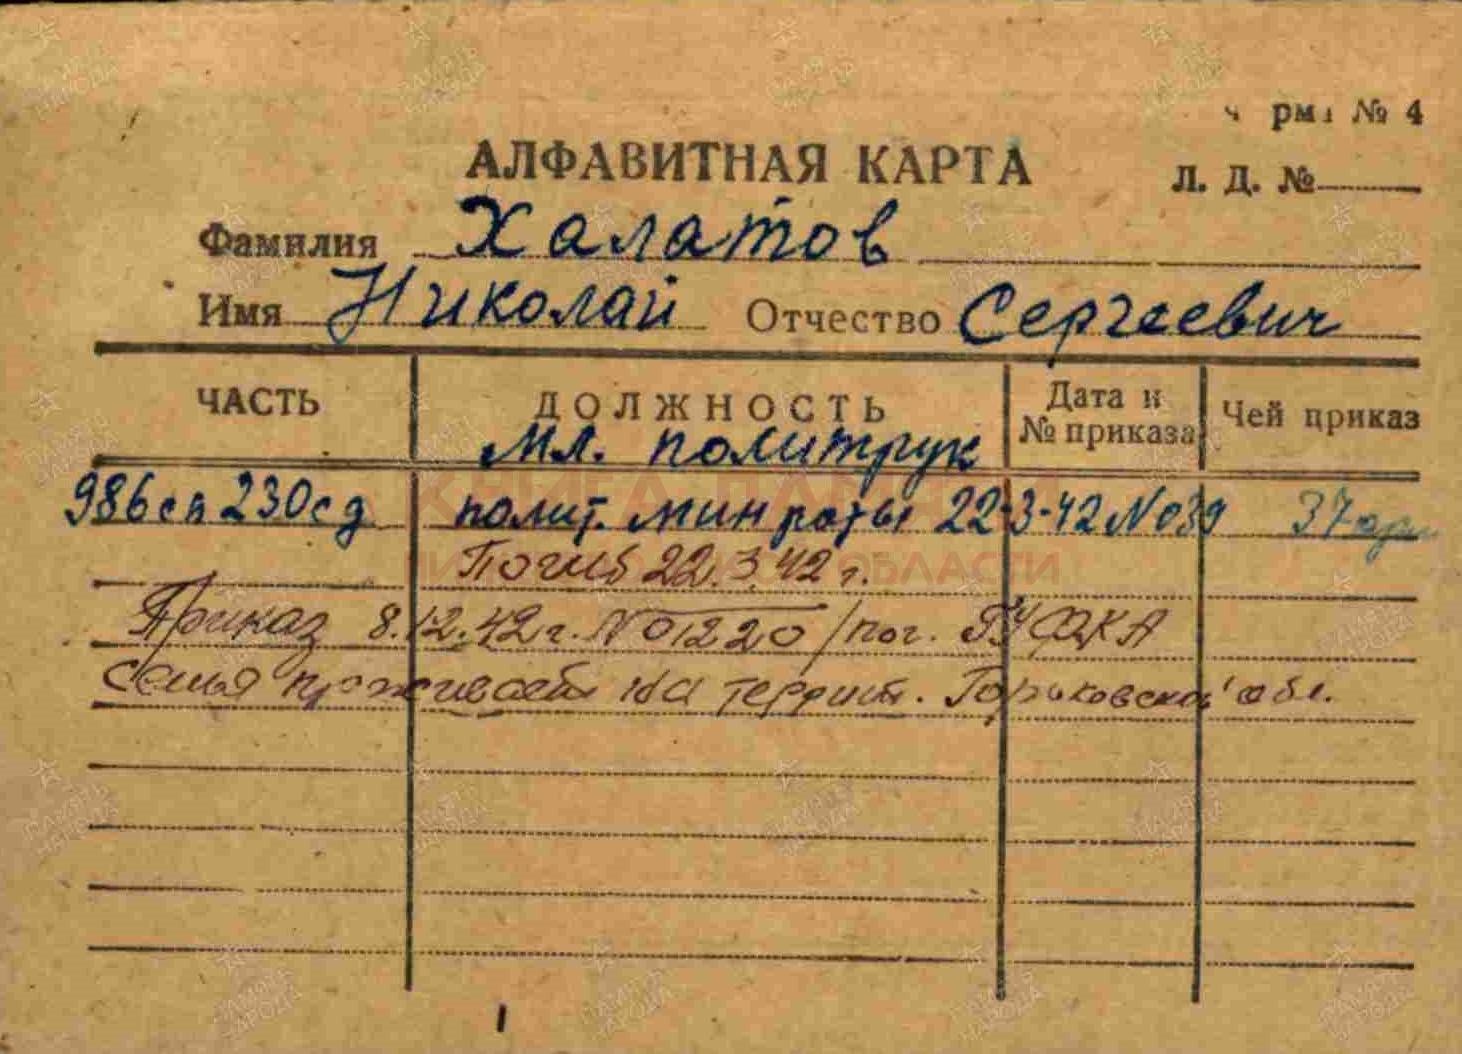 рма № 4
АЛФАВИТНАЯ КАРТА
Л. Д. №
Фамилия Халатов
Имя Николай Отчество Сергеевич
ЧАСТЬ ДОЛЖНОСТЬ Дата и № приказа Чей приказ
мл. политрук
986 сп 230 сд полит. мин роты 22-3-42 № 039 37 арм
Погиб 22.3.42 г.
Приказ 8.12.42 г. № 01220 /пог. ГУФКА
семья проживает на террит. Горьковской обл.
КНИГА ПАМЯТИ
ОБЛАСТИ
ПАМЯТЬ НАРОДА